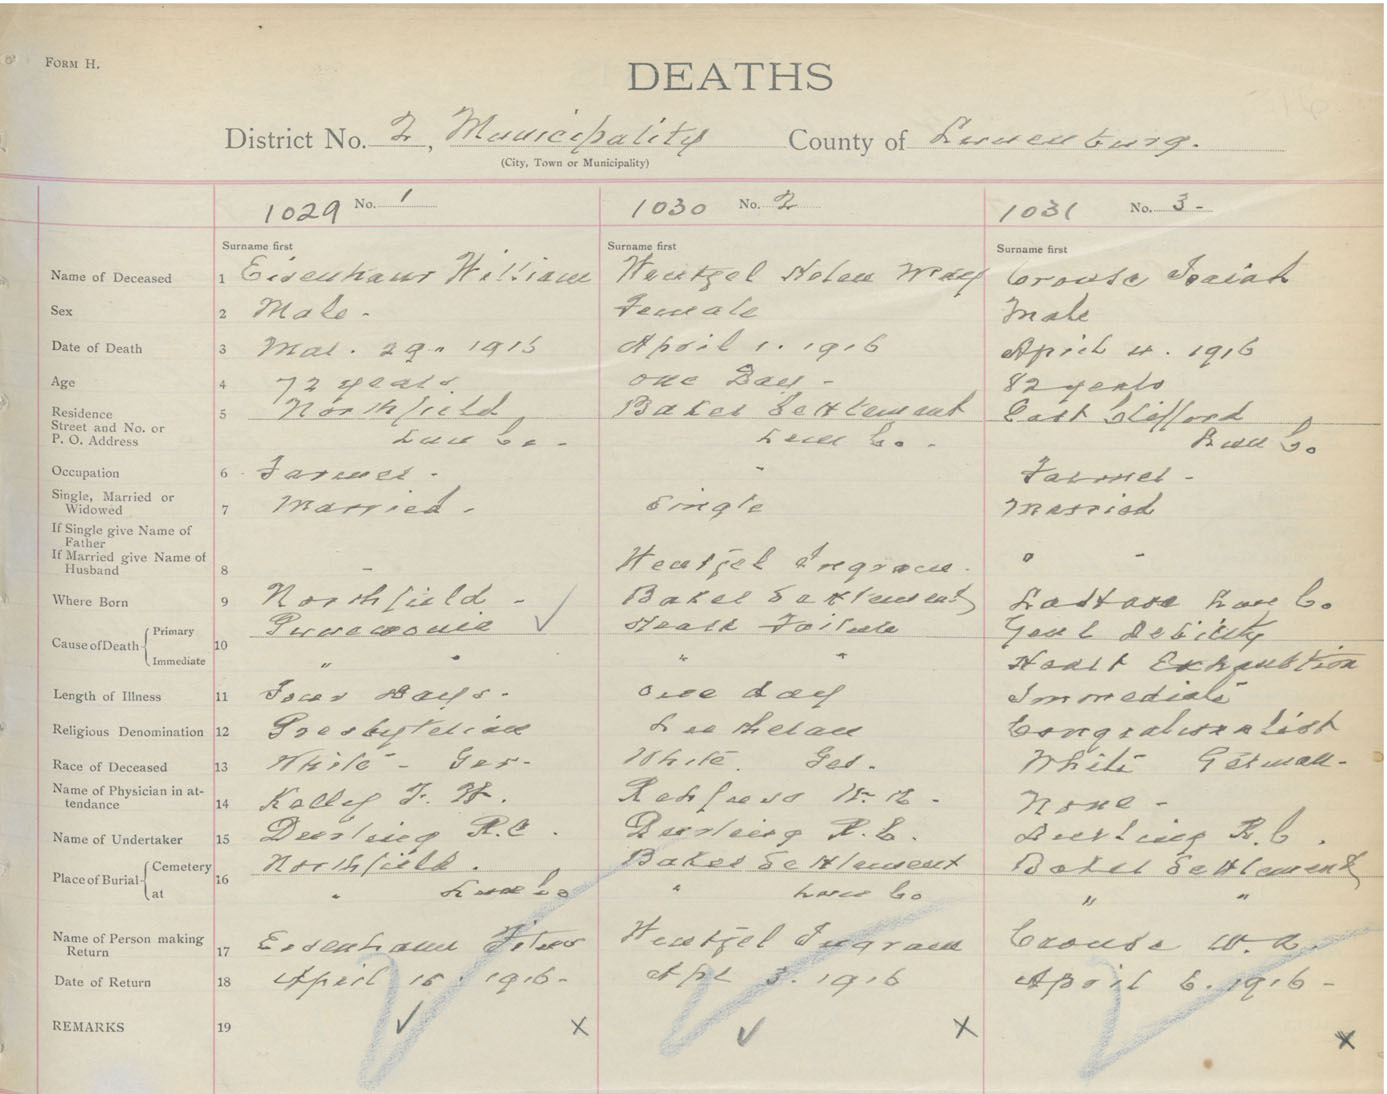 FORM H.
DEATHS
District No. 2, Municipality County of Lunenburg.
(City, Town or Municipality)
1029 No. 1 1030 No. 2 1031 No. 3-
Surname first Surname first Surname first
Name of Deceased 1 Eisenhaur William Wentzel Helen Crouse Isaiah
Sex 2 Male. Female Male
Date of Death 3 Mar. 29. 1915 April 1. 1916 April 4. 1916
Age 4 72 years one Day - 82 years
Residence
Street and No. or
P. O. Address 5 Northfield Baker Settlement East
Lun Co. - Lun Co. - Lun Co.
Occupation 6 Farmer - - Farmer -
Single, Married or
Widowed 7 Married. Single Married
If Single give Name of
Father
If Married give Name of
Husband 8 - Wentzel Ingram. " -
Where Born 9 Northfield - Baker Settlement Lun Co.
Cause of Death Primary 10 Pneumonia Heart Failure Genl Debility
Immediate " " " " Heart Exhaustion
Length of Illness 11 Four Days. one day Immediate
Religious Denomination 12 Presbyterian Lutheran
Race of Deceased 13 White - Ger. White. Ger. White German-
Name of Physician in at-
tendance 14 Kelley F. W. None -
Name of Undertaker 15 R.C. R.C. R.C.
Place of Burial Cemetery 16 Northfield. Baker Settlement Baker Settlement
at " Lun Co " Lun Co " "
Name of Person making
Return 17 Eisenhaur Wentzel Ingram Crouse W. A.
Date of Return 18 April 15. 1916- Apl 3. 1916 April 6. 1916-
REMARKS 19 ✓ x ✓ x x